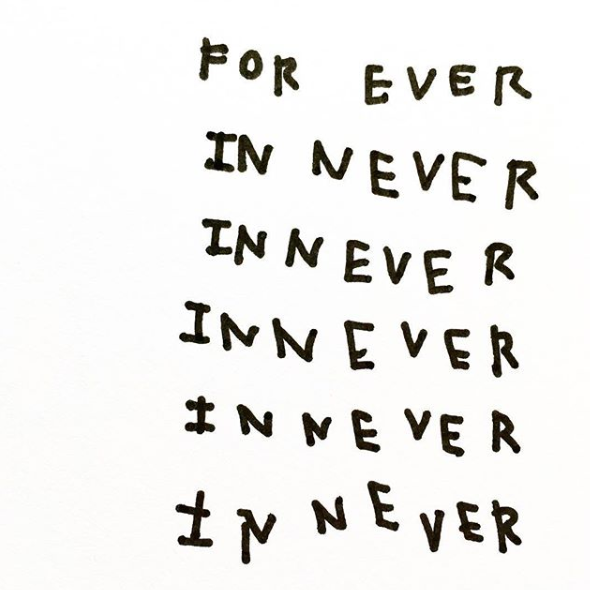 FOR EVER
IN NEVER
INNEVER
INNEVER
INNEVER
IN NEVER